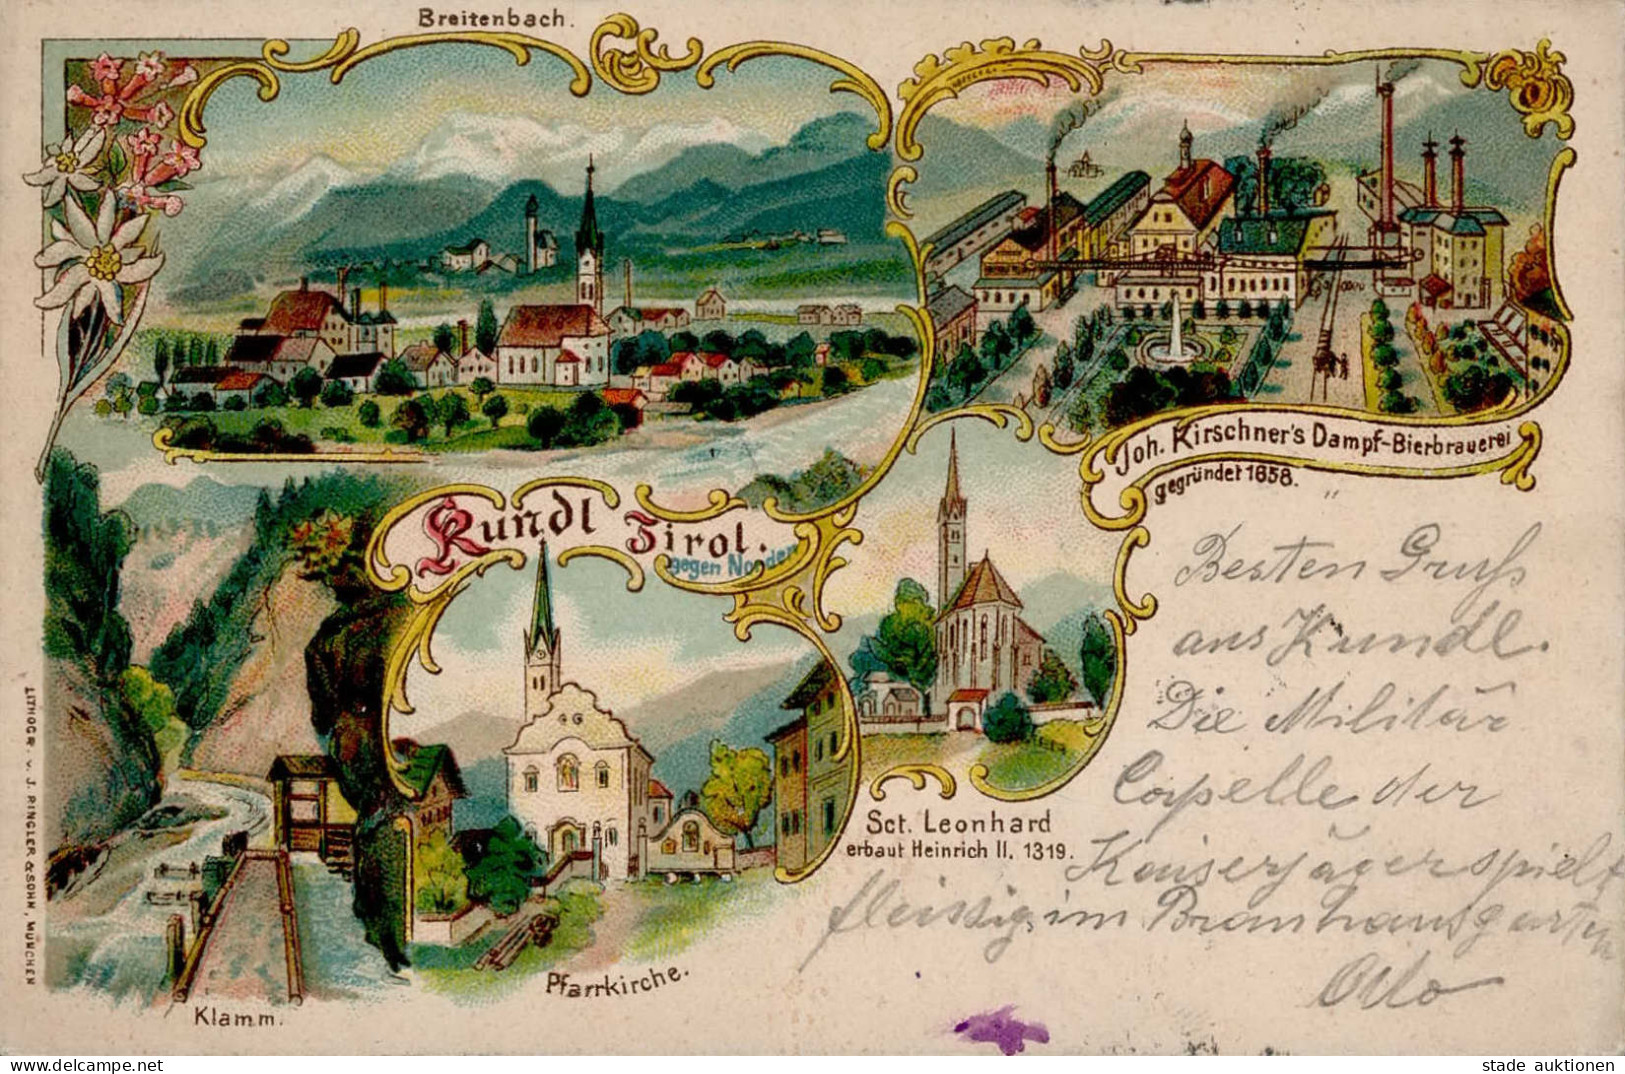 Breitenbach.
Joh. Kirschner's Dampf-Bierbrauerei
gegründet 1658.
Kundl Tirol.
gegen Norden
Klamm.
Pfarrkirche.
Sct. Leonhard
erbaut Heinrich II. 1319.
LITHOGR. v. J. RINGLER & SOHN, MÜNCHEN
Besten Gruß
aus Kundl.
Die Militär
Capelle der
Kaiserjäger spielt
fleissig im Brauhausgarten
Otto
stade auktionen